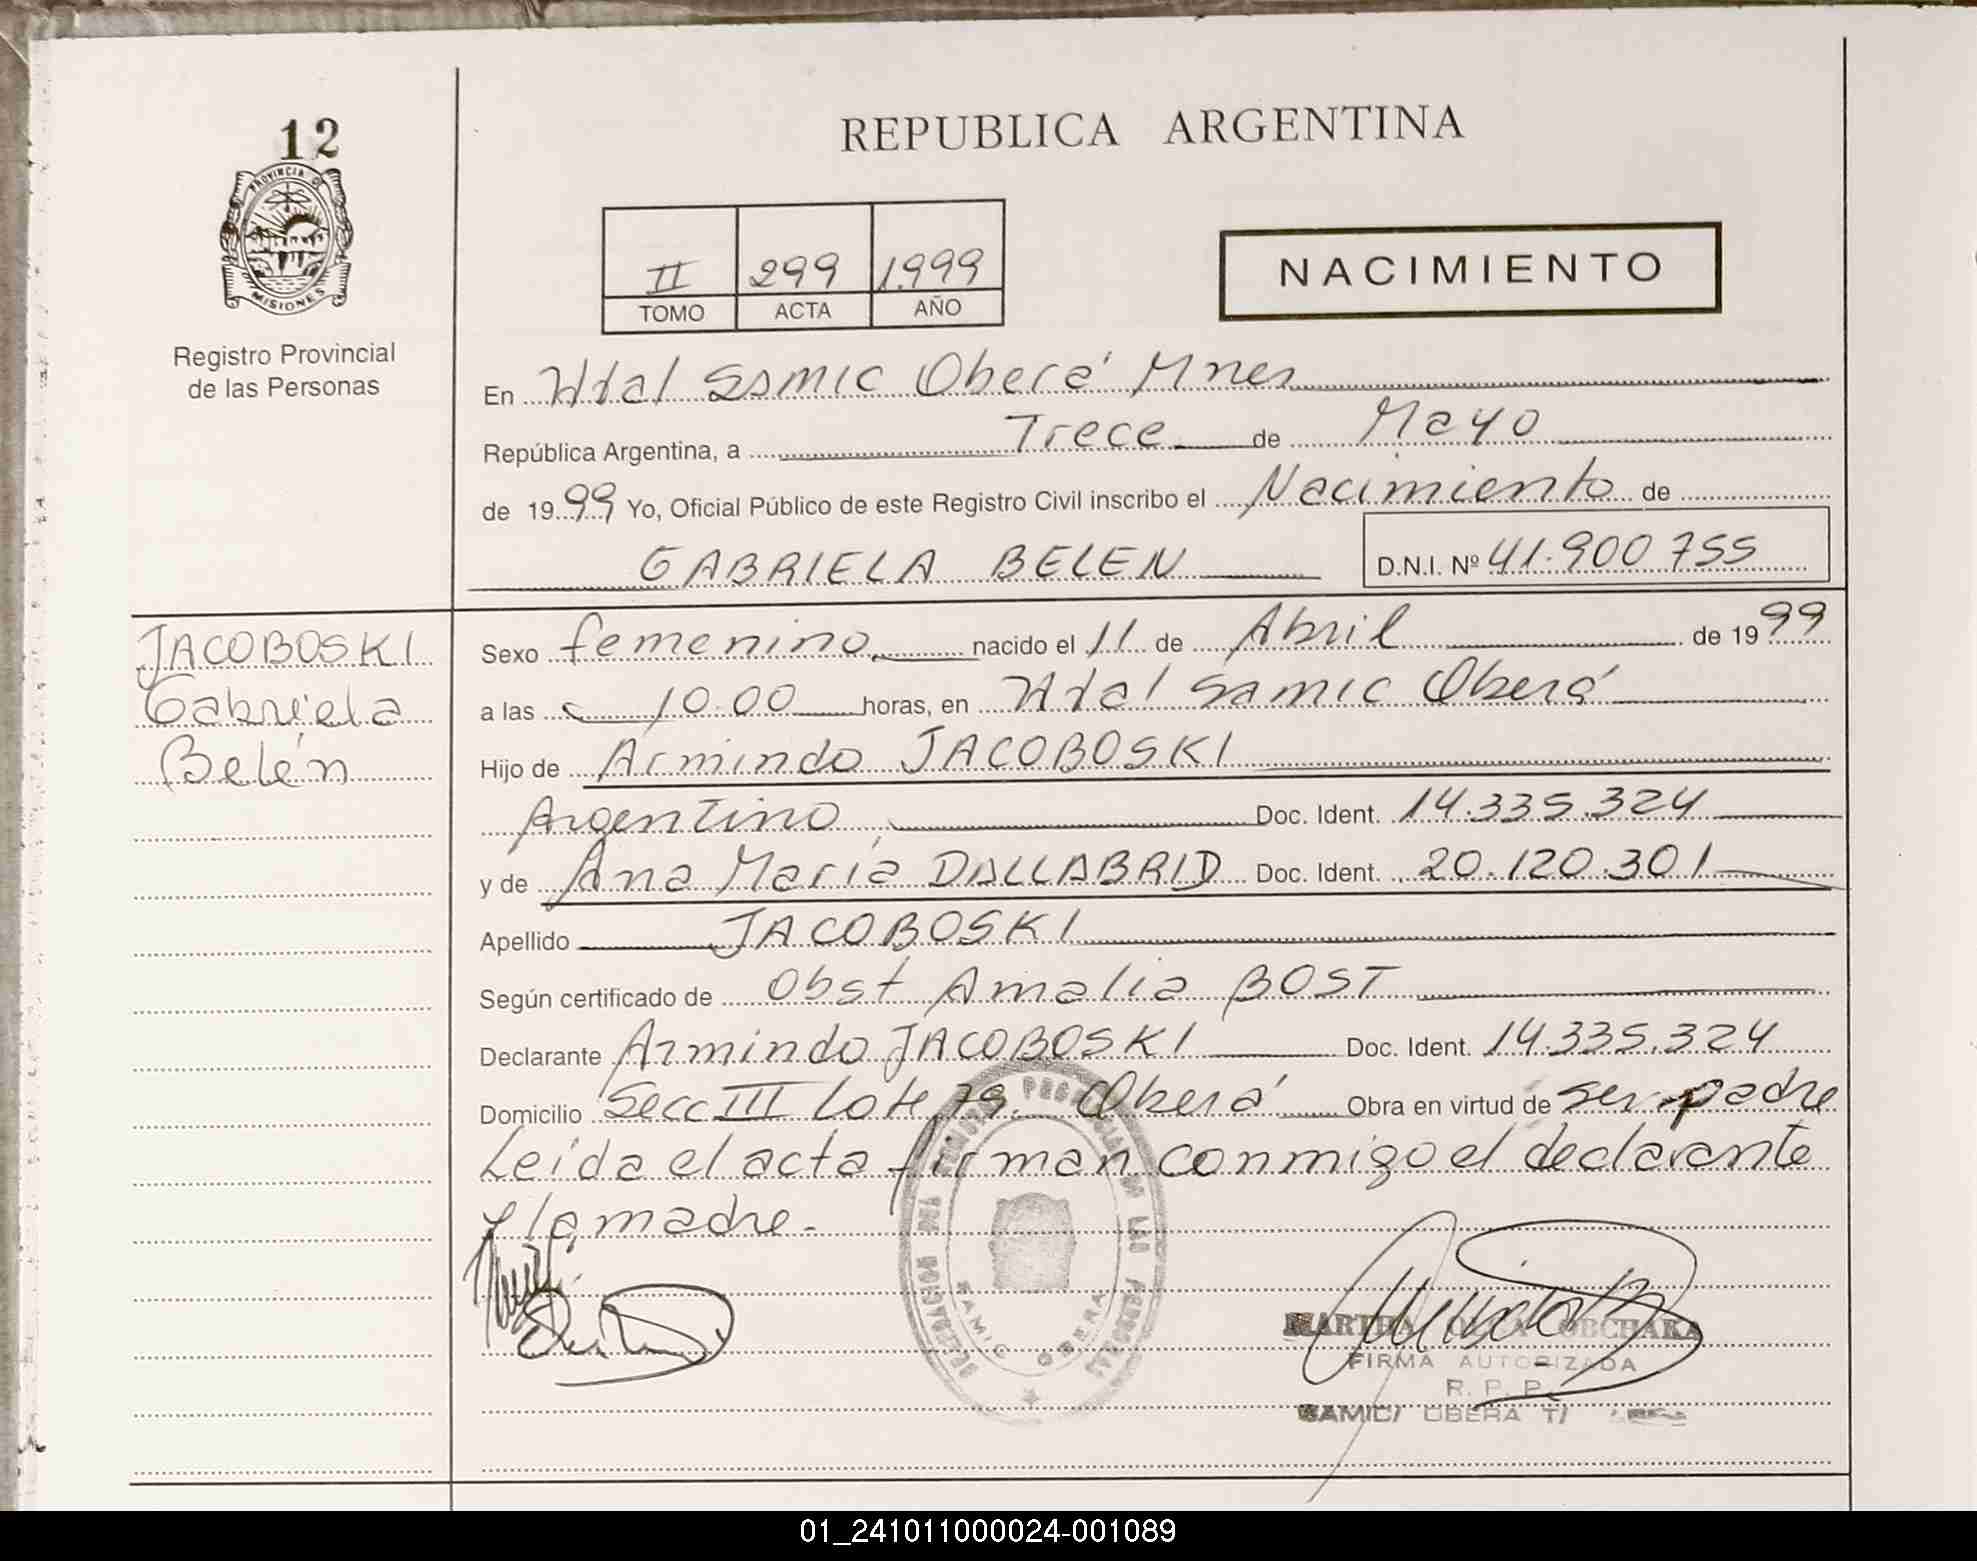 12
PROVINCIA D
MISIONES
Registro Provincial
de las Personas
REPUBLICA ARGENTINA
II 299 1.999
TOMO ACTA AÑO
NACIMIENTO
En Htal Samic Oberá Mnes
República Argentina, a Trece de Mayo
de 1999 Yo, Oficial Público de este Registro Civil inscribo el Nacimiento de
GABRIELA BELEN D.N.I. Nº 41.900755
JACOBOSKI
Gabriela
Belén
Sexo femenino nacido el 11 de Abril de 1999
a las 10.00 horas, en Htal Samic Oberá
Hijo de Armindo JACOBOSKI
Argentino Doc. Ident. 14.335.324
y de Ana María DALLABRID Doc. Ident. 20.120.301
Apellido JACOBOSKI
Según certificado de Obst Amalia BOST
Declarante Armindo JACOBOSKI Doc. Ident. 14.335.324
Domicilio Secc III Lote 79. Oberá Obra en virtud de ser padre
Leída el acta firman conmigo el declarante
y la madre.-
DELEGACION DEL REGISTRO PROVINCIAL DE LAS PERSONAS
SAMIC OBERA
MARTHA OBCHAKA
FIRMA AUTORIZADA
R. P. P.
SAMIC/ OBERA
01_241011000024-001089